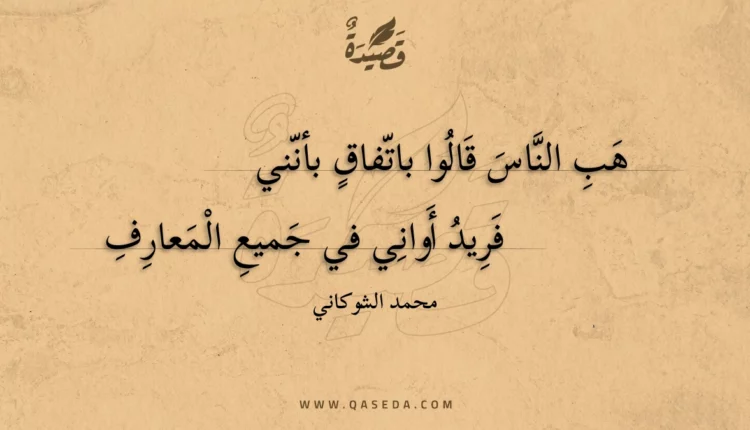 قَصِيدَةٌ
هَبِ النَّاسَ قَالُوا باتّفاقٍ بأنّني
فَرِيدُ أَوانِي في جَميعِ الْمَعارِفِ
محمد الشوكاني
WWW.QASEDA.COM